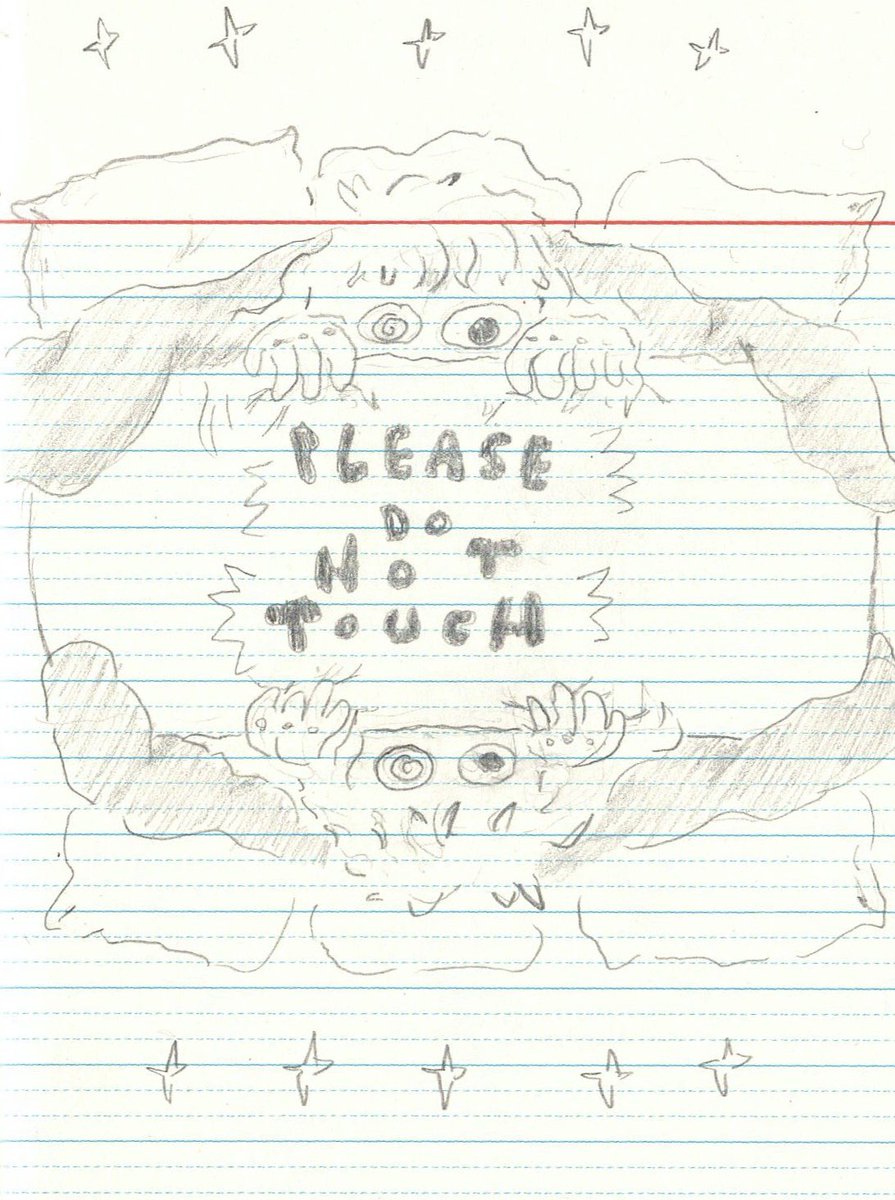 PLEASE
DO
NOT
TOUCH